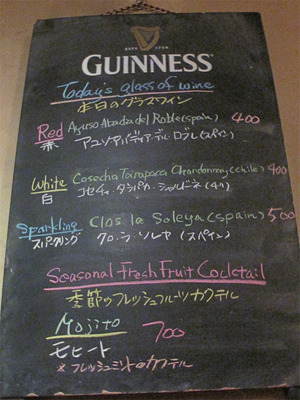 ESTD 1759
GUINNESS
Today's glass of wine
本日のグラスワイン
Red Ayuso Abadia del Roble (spain) 400
赤 アユソ アバディア・デル・ロブレ (スペイン)
White Cosecha Tarapaca Chardonnay (chile) 400
白 コセチャ・タラパカ・シャルドネ (チリ)
Sparkling Clos. la Soleya (spain) 500
スパークリング クロ・ラ・ソレヤ (スペイン)
Seasonal Fresh Fruit Cocktail
季節のフレッシュフルーツカクテル
Mojito 700
モヒート
※フレッシュミントのカクテル